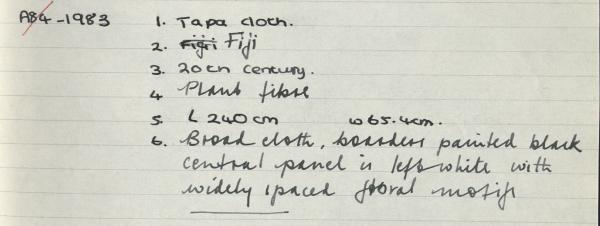 A84-1983 1. Tapa cloth.
2. Figri Fiji
3. 20th century.
4 Plant fibre
5. L 240cm w65.4cm.
6. Broad cloth, boarders painted black
central panel is left white with
widely spaced floral motifs